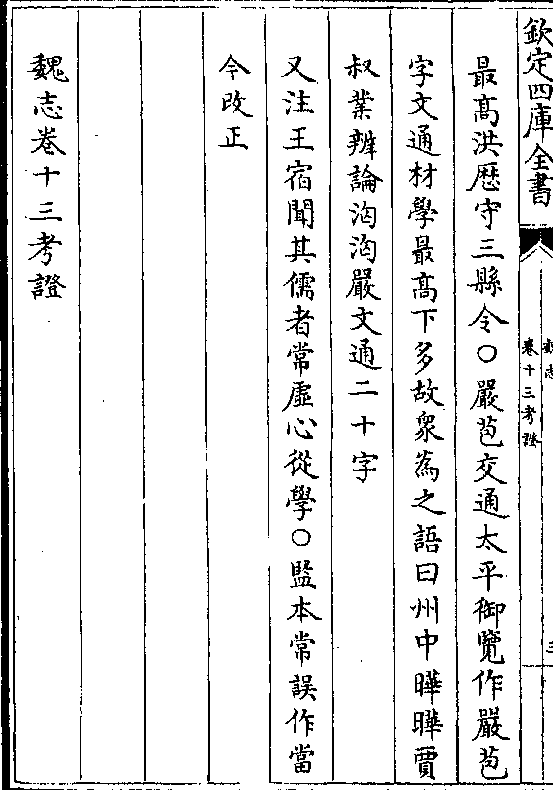 欽定四庫全書
魏志
卷十三考證
三
最髙洪歴守三縣令○嚴苞交通太平御覽作嚴苞
字文通材學最髙下多故衆為之語曰州中曄曄賈
叔業辨論洶洶嚴文通二十字
又注王宿聞其儒者常虛心從學○監本常誤作當
今改正
魏志卷十三考證